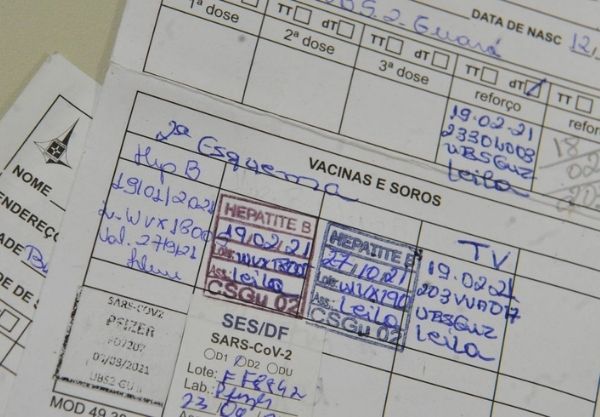 UBS.2. Guará
DATA DE NASC 12/
1ª dose
TT dT
2ª dose
TT dT
3ª dose
TT dT
reforço
19.02.21
UBSGU2
Leila
TT
reforço
18
02
202
NOME
ENDEREÇO
DADE
DE DE
2º Esquema
VACINAS E SOROS
Hep B
19/01/2021
L.WVX1800
Val. 27/9/21
HEPATITE B
19.02.21
Lote:
Ass.: Leila
CSGu 02
HEPATITE B
27.10.21
Lote: WVX190
Ass.: Leila
CSGu 02
TV
19.02.21
UBSGU2
Leila
SARS-COV2
PFIZER
UBS2 GUII
SES/DF
SARS-CoV-2
D1 D2 DU
Lote:
Lab.:
23
MOD 49.30